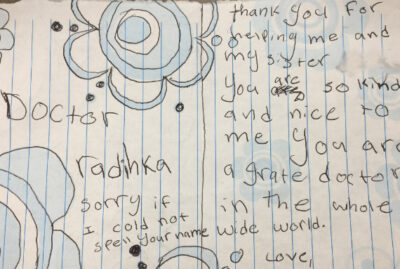 Doctor
radihka
sorry if
I cold not
spell your name
thank you for
helping me and
my sister
You are so kind
and nice to
me You are
a grate doctor
in the whole
wide world.
Love,